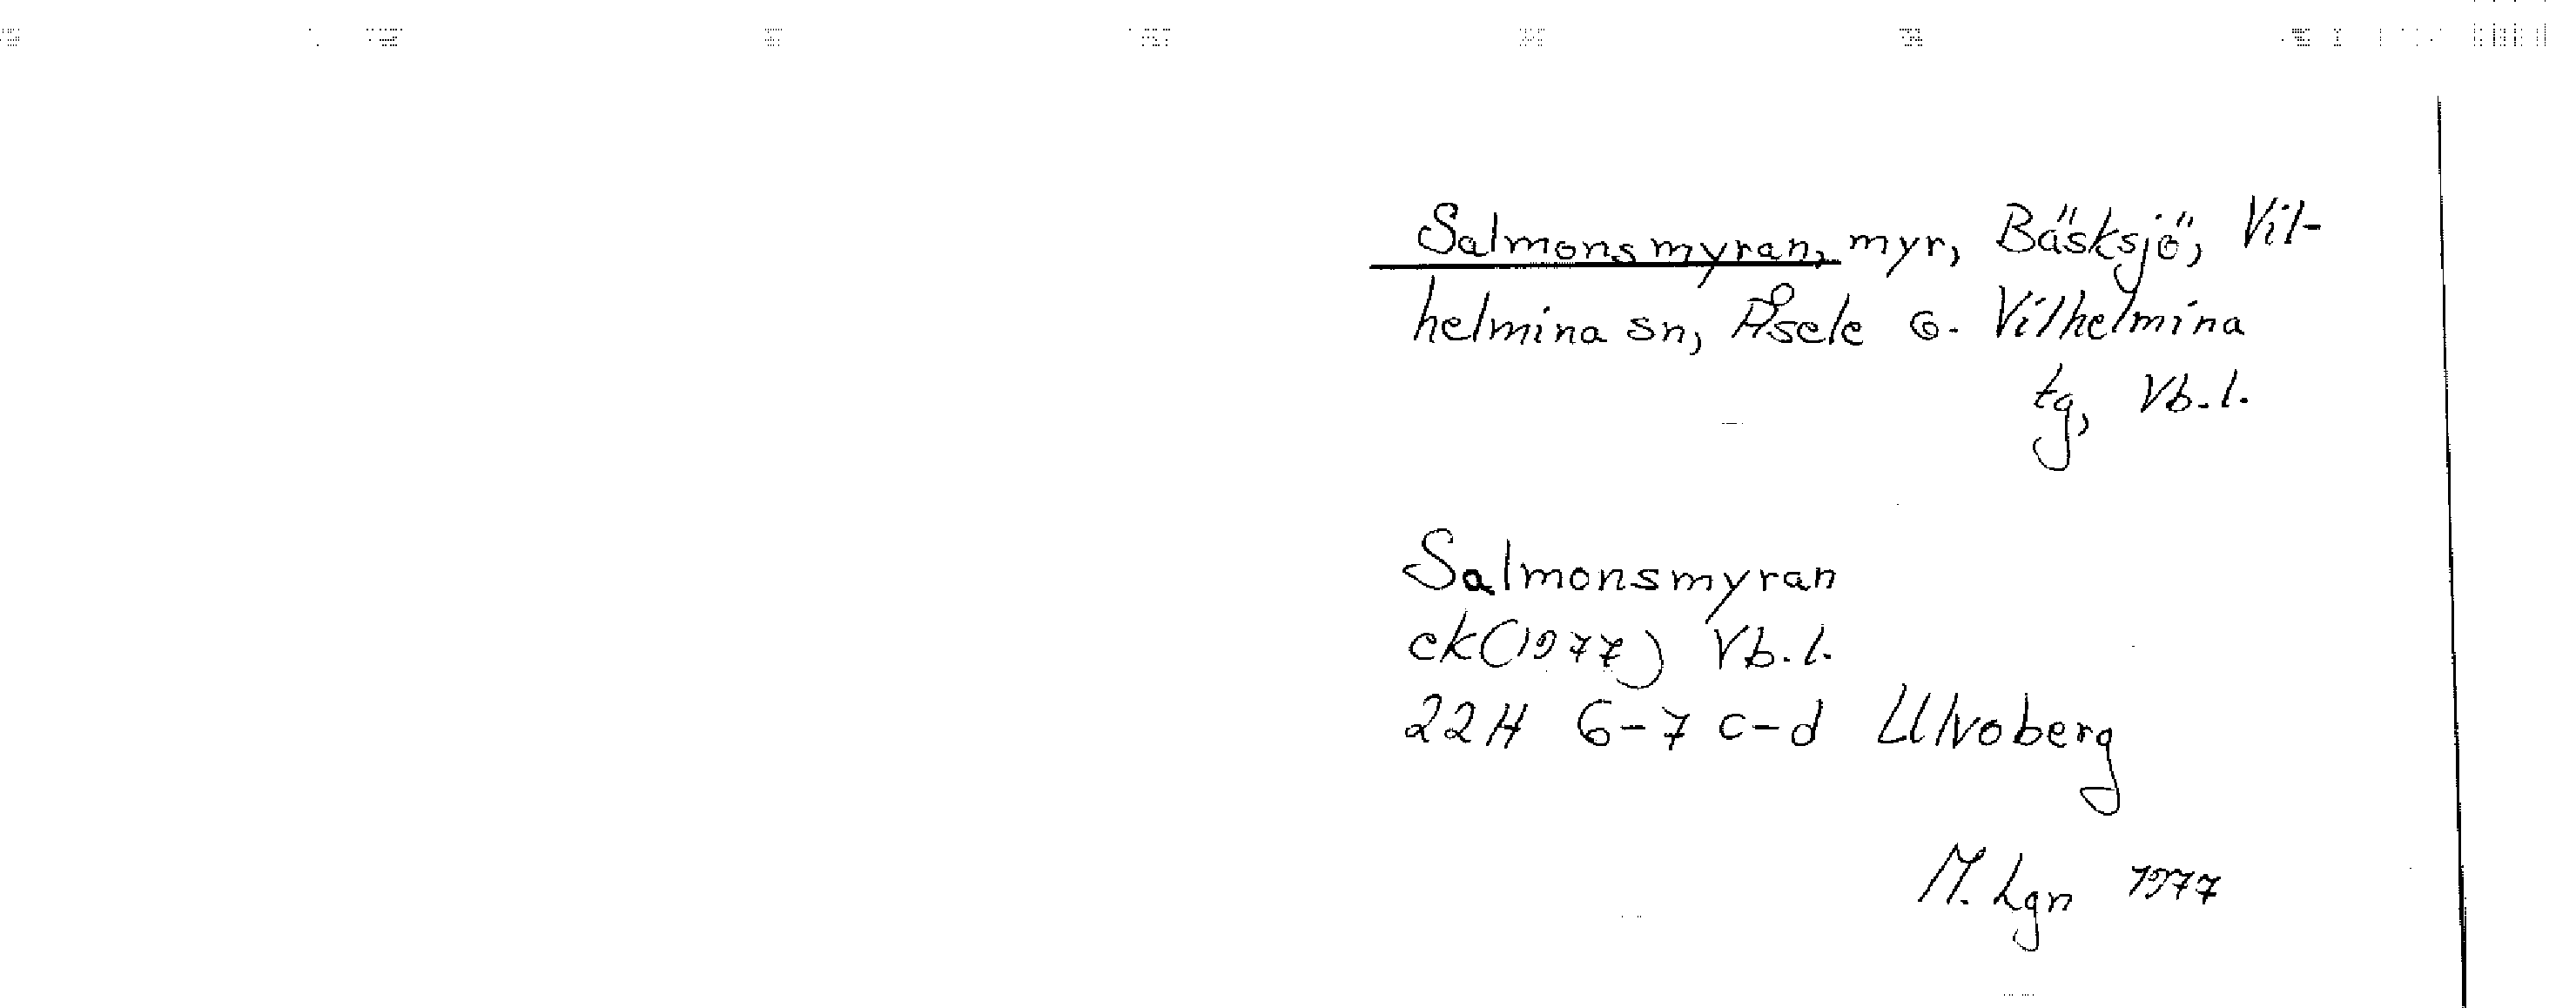 Salmonsmyran, myr, Bäsksjö, Vil-
helmina sn, Åsele o. Vilhelmina
tg, Vb.l.
Salmonsmyran
ek(1977) Vb.l.
22H 6-7 c-d Ulvoberg
M. Lgn 1977